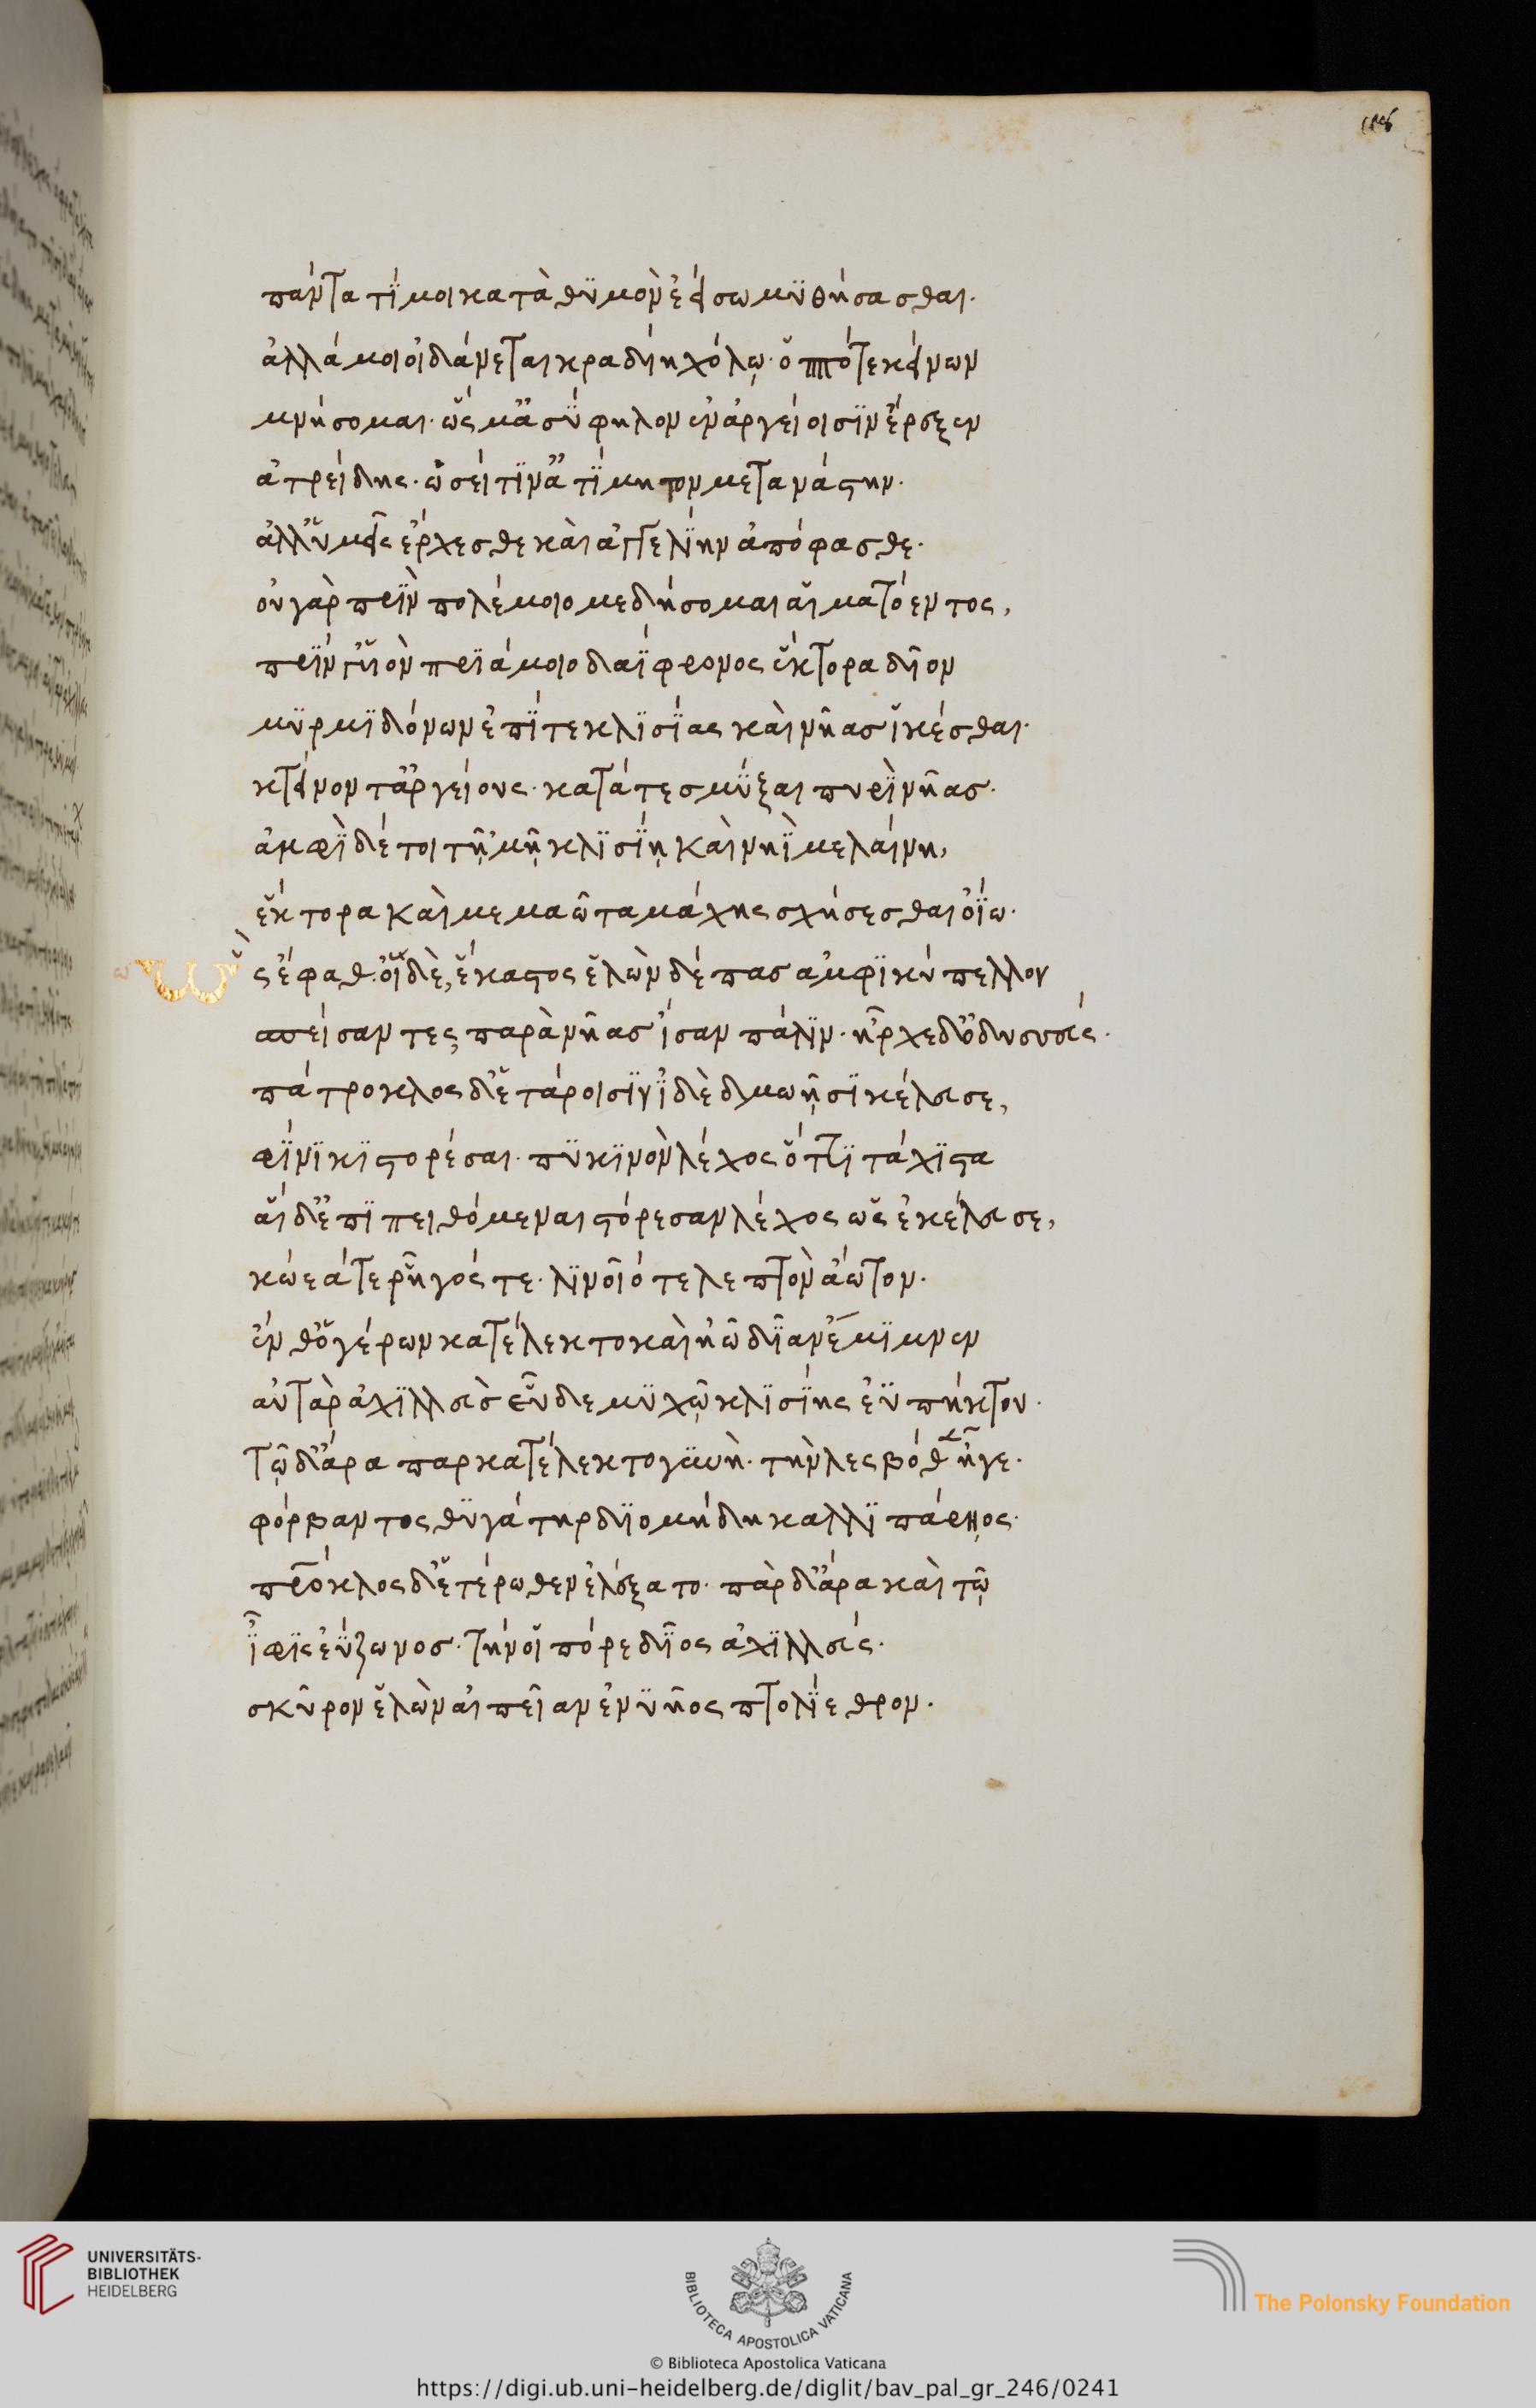 πάντα τί μοι κατὰ θυμὸν ἐείσω μυθήσασθαι·
ἀλλά μοι οἰδάνεται κραδίη χόλω· ὁππότε κείνων
μνήσομαι· ὥς μ' ἀσύφηλον ἐν ἀργείοισιν ἔρεξεν
ἀτρείδης· ὡσεί τιν' ἀτίμητον μεταναστην·
ἀλλ' ὑμεῖς ἔρχεσθε καὶ ἀγγελίην ἀπόφασθε·
οὐ γὰρ πρὶν πολέμοιο μεδήσομαι αἱματόεντος,
πρίν γ' υἱὸν πριάμοιο δαΐφρονος ἕκτορα δῖον
μυρμιδόνων ἐπί τε κλισίας καὶ νῆας ἱκέσθαι·
κτείνοντ' ἀργείους· κατά τε σμύξαι πυρὶ νῆας·
ἀμφὶ δέ τοι τῇ 'μῇ κλισίῃ καὶ νηῒ μελαίνῃ,
ἕκτορα καὶ μεμαῶτα μάχης σχήσεσθαι ὀΐω·
ὣς ἔφαθ· οἱ δὲ, ἕκαστος ἑλὼν δέπας ἀμφικύπελλον
σπείσαντες, παρὰ νῆας ἴσαν πάλιν· ἦρχε δ' ὀδυσσεύς·
πάτροκλος δ' ἑτάροισιν ἰδὲ δμωῇσι κέλευσε,
φοίνικι στορέσαι· πυκινὸν λέχος ὅττι τάχιστα
αἱ δ' ἐπιπειθόμεναι στόρεσαν λέχος ὡς ἐκέλευσε,
κώεά τε ῥῆγός τε· λίνοιό τε λεπτὸν ἄωτον·
ἔνθ' ὁ γέρων κατέλεκτο καὶ ἠῶ δῖαν ἔμιμνεν
αὐτὰρ ἀχιλλεὺς εὗδε μυχῷ κλισίης ἐϋπήκτου·
τῷ δ' ἄρα παρκατέλεκτο γυνὴ· τὴν λεσβόθεν ἦγε·
φόρβαντος θυγάτηρ διομήδη καλλιπάρῃος·
πάτροκλος δ' ἑτέρωθεν ἐλέξατο· πὰρ δ' ἄρα καὶ τῷ
ἶφις ἐΰζωνος· τήν οἱ πόρε δῖος ἀχιλλεύς·
σκῦρον ἑλὼν αἰπεῖαν ἐνυῆος πτολίεθρον·
UNIVERSITÄTS-
BIBLIOTHEK
HEIDELBERG
BIBLIOTECA APOSTOLICA VATICANA
© Biblioteca Apostolica Vaticana
The Polonsky Foundation
https://digi.ub.uni-heidelberg.de/diglit/bav_pal_gr_246/0241